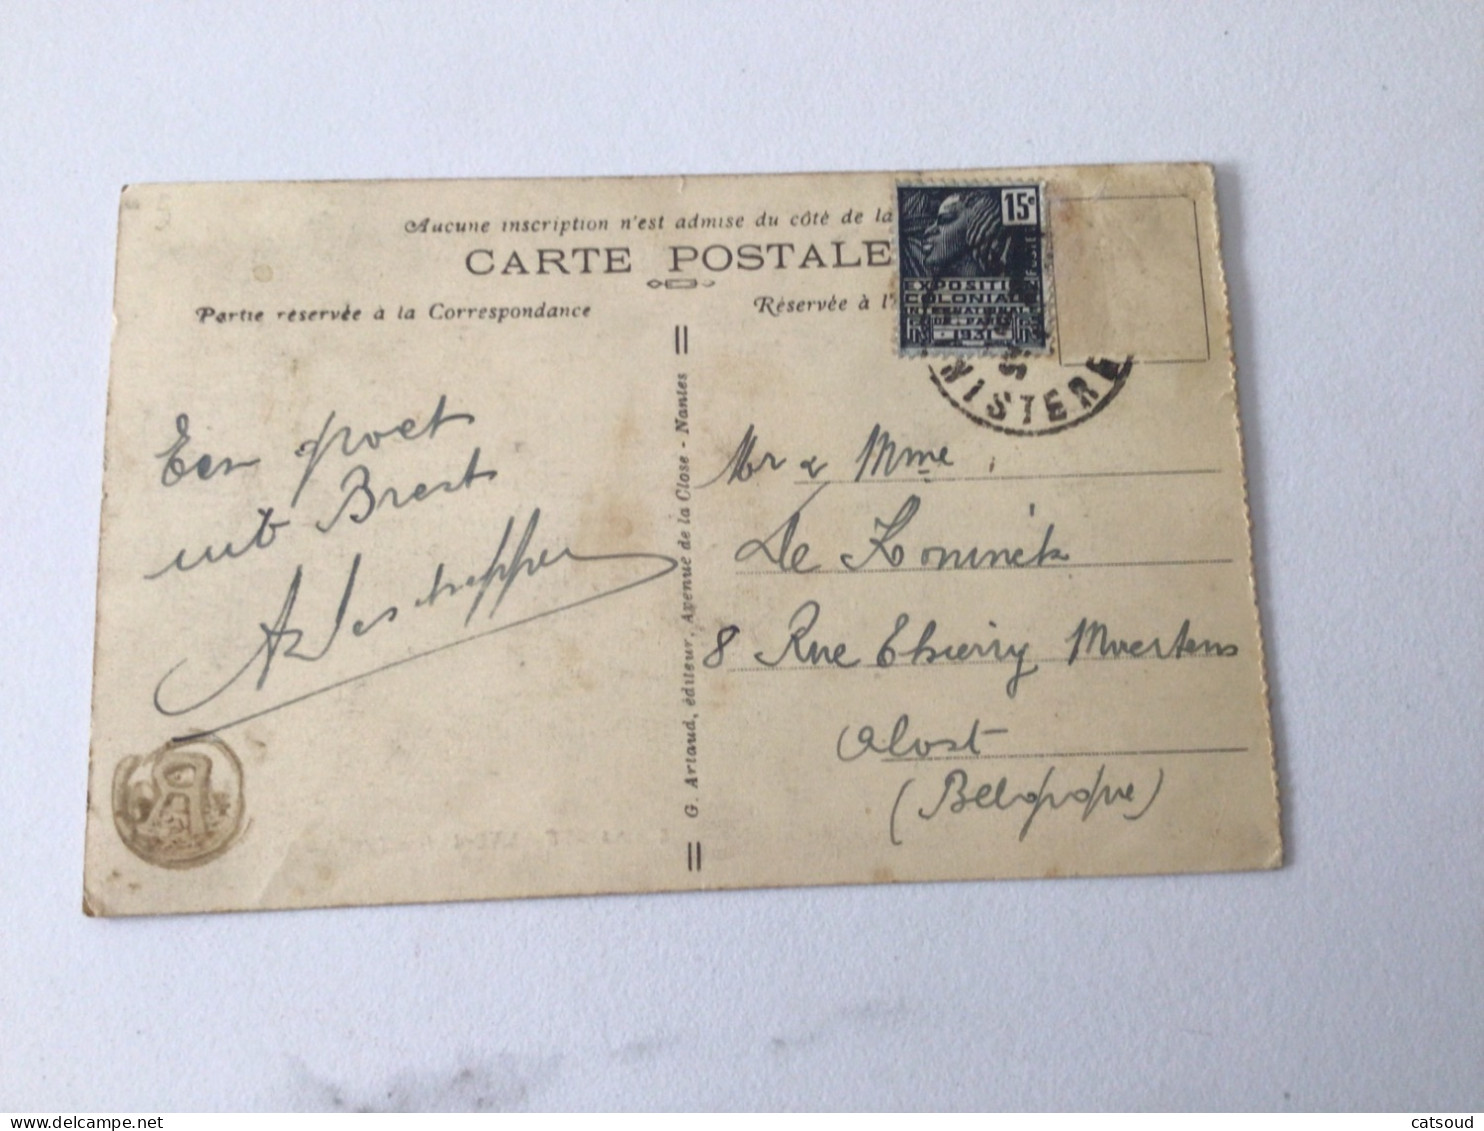 Aucune inscription n'est admise du côté de la
CARTE POSTALE
Partie réservée à la Correspondance
Réservée à l'
15c
POSTES
EXPOSITION
COLONIALE
INTERNATIONALE
DE PARIS
1931
NISTERE
Een groet
uit Brest
A Deschepper
G. Artaud, éditeur, Avenue de la Close - Nantes
Mr & Mme
De Koninck
8 Rue Thierry Maertens
Alost
(Belgique)
catsoud